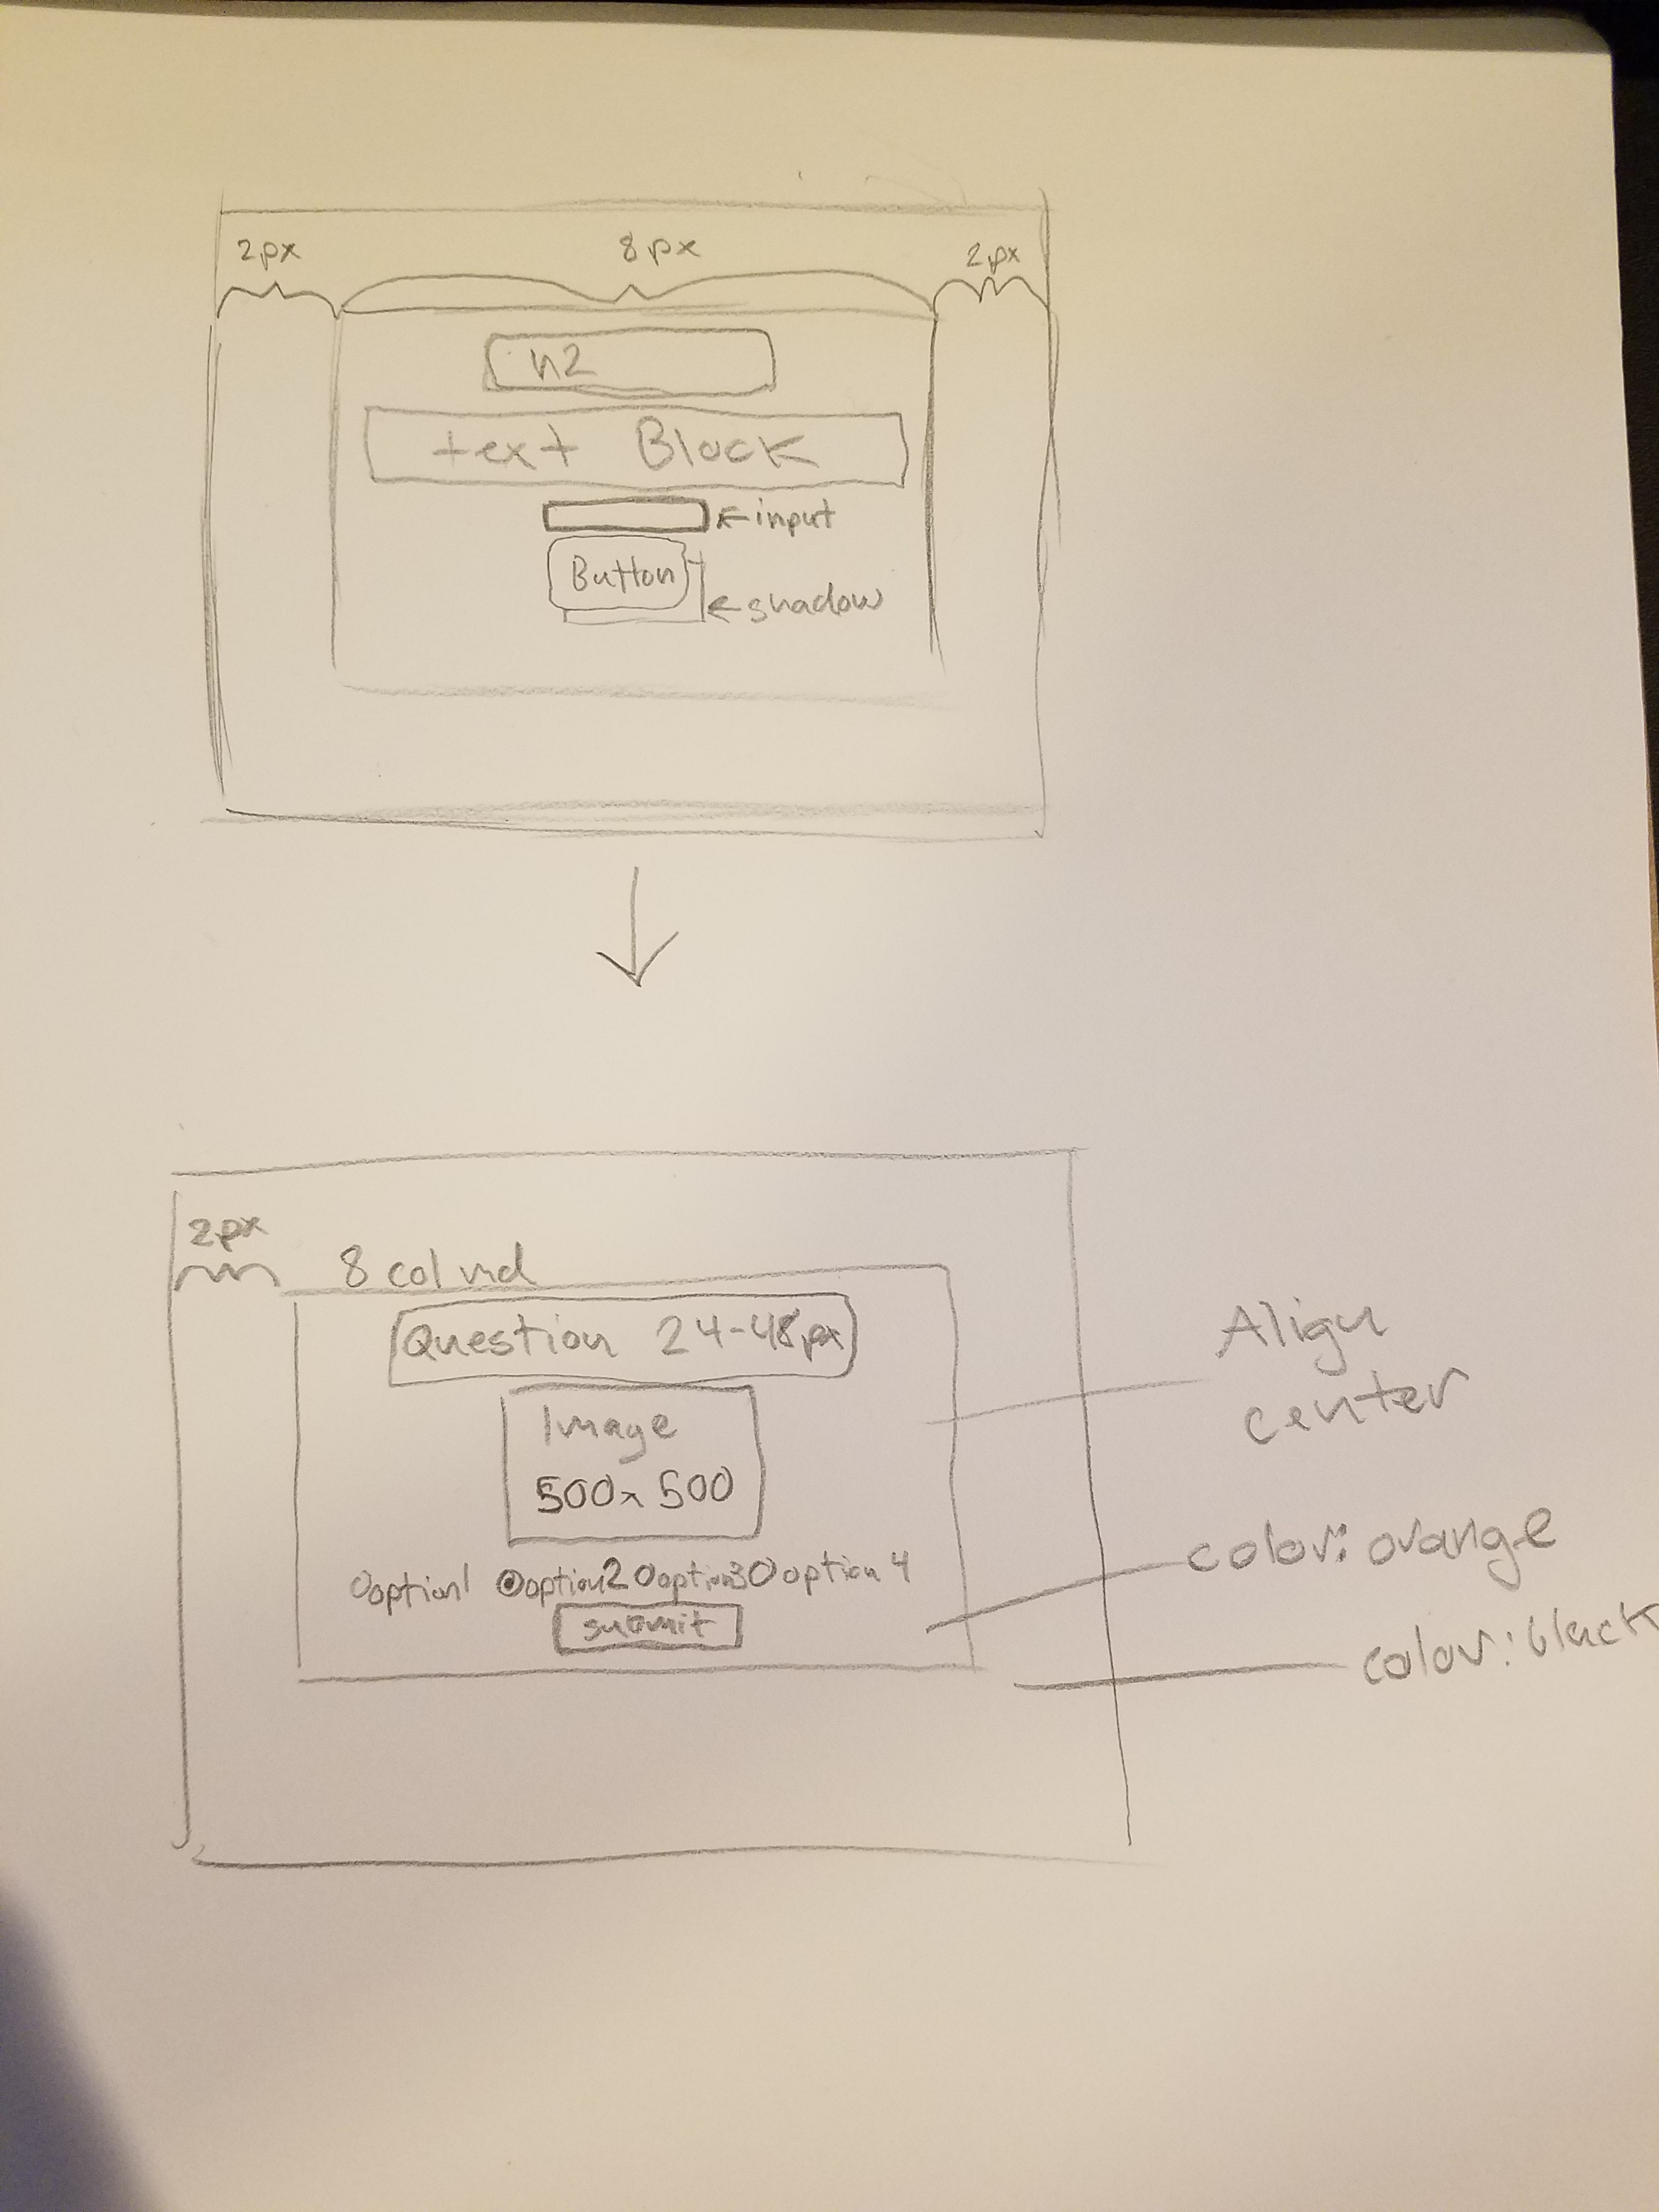 2px 8px 2px
h2
text Block
input
Button
shadow
2px
8 col md
Question 24-48px
Image
500x500
option1 option2 option3 option 4
submit
Align
center
color: orange
color: black